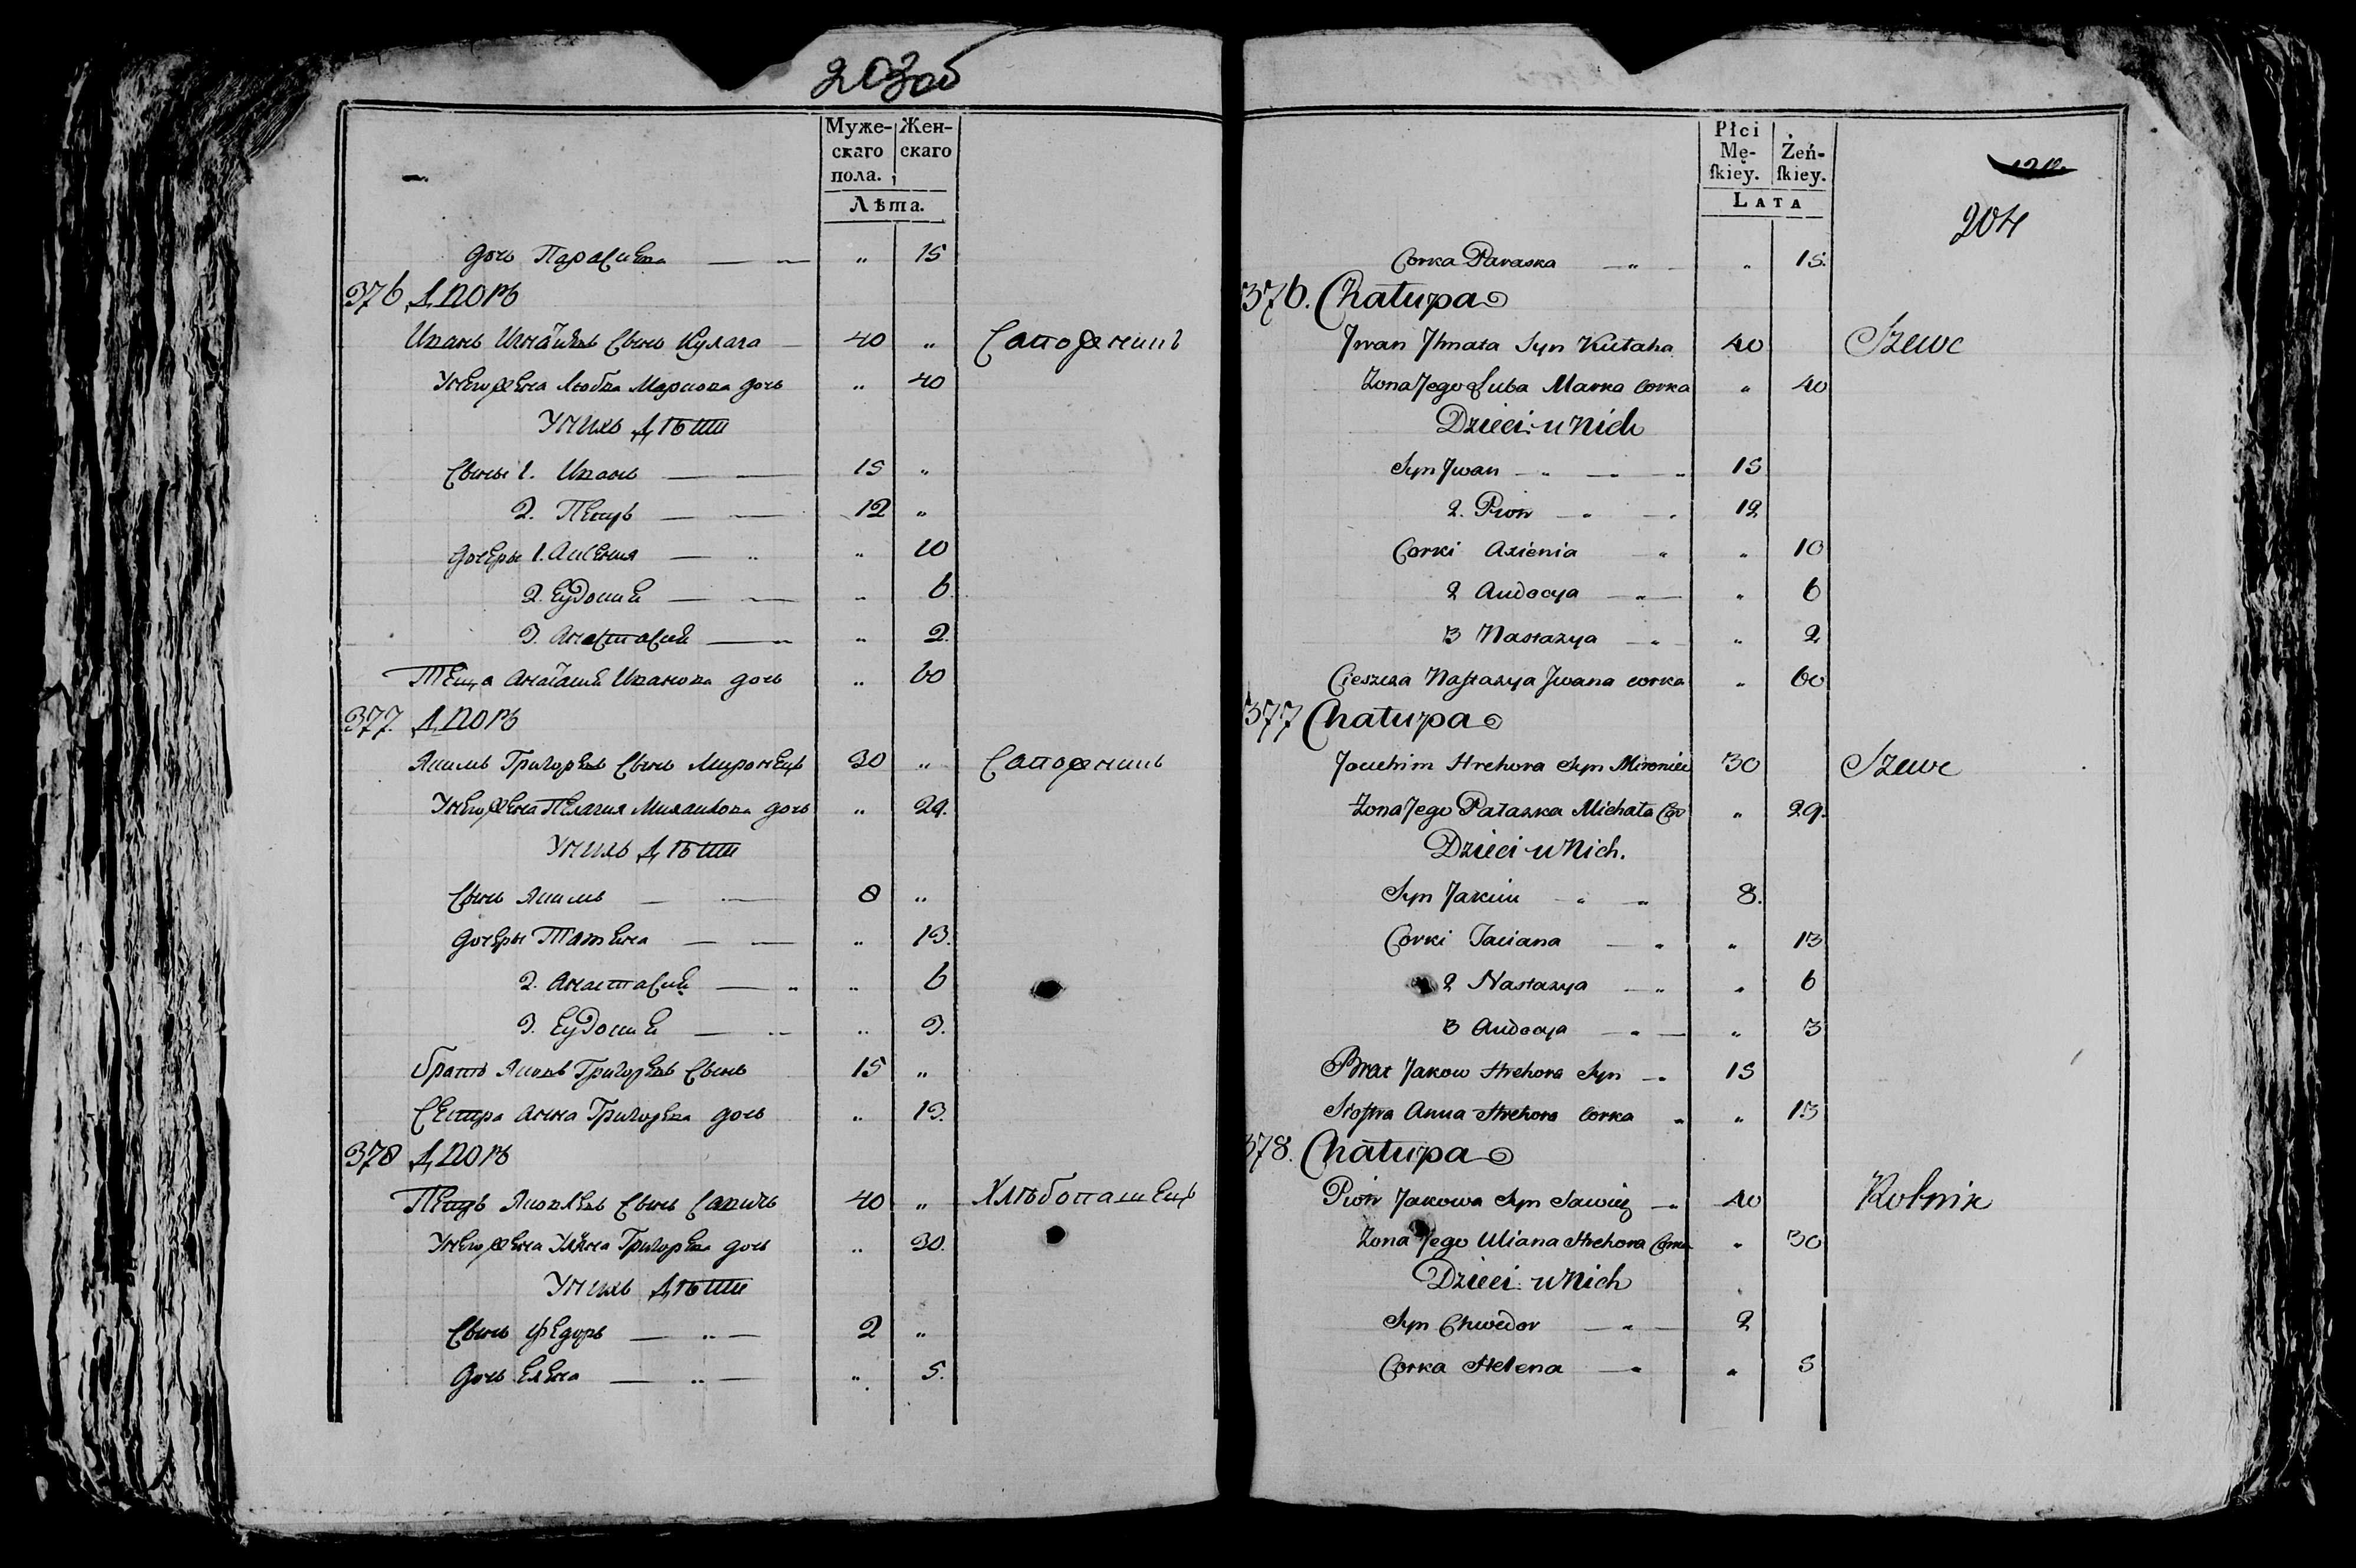 203об
Муже-
скаго
пола.
Жен-
скаго
Лѣта.
дочь Парасцева — — „ 15
376 Дворъ
Иванъ Игнатьевъ Сынъ Кулага — 40 „ Сапожникъ
У него жена Любка Маркова дочь „ 40
У нихъ Дѣти
Сыны 1. Иванъ — — 15 „
2. Петръ — — 12 „
дочери 1. Аксения — „ „ 10
2. Еудокия — — „ 6.
3. Анастасия — „ „ 2.
Теща Анастасия Иванова дочь „ 60
377. Дворъ
Якимъ Григорьевъ Сынъ Миронецъ 30 „ Сапожникъ
У него жена Пелагия Михайлова дочь „ 29.
У нихъ Дѣти
Сынъ Якимъ — — 8 „
дочери Татьяна — — „ 13.
2. Анастасия — „ „ 6
3. Еудокия — „ „ 3.
братъ Яковъ Григорьевъ Сынъ 15 „
Сестра Анна Григорьева дочь „ 13.
378 Дворъ
Петръ Яковлевъ Сынъ Савичъ 40 „ Хлѣбопашецъ
У него жена Ульяна Григорьева дочь „ 30.
У нихъ Дѣти
Сынъ Федоръ — „ — 2 „
дочь Елена — „ — „ 5.
Płci
Mę-
ſkiey.
Żeń-
ſkiey.
LATA
204
Corka Paraska — „ — „ 15.
376. Chałupa
Jwan Jhnata Syn Kułaha 40 Szewc
Zona Jego Luba Marka Corka „ 40
Dzieci u Nich
Syn Jwan — „ — „ 15
2. Piotr — „ — „ 12
Corki Axienia — „ „ 10
2 Audocya — „ — „ 6
3 Nastazya — „ „ 2
Cieszcza Nastazya Jwana corka „ 60
377 Chałupa
Joachim Hrehora Syn Mironiec 30 Szewc
Zona Jego Pałazka Michała Cor „ 29.
Dzieci u Nich.
Syn Jakim — „ — „ 8.
Corki Taciana — „ „ 13
2 Nastazya — „ „ 6
3 Audocya — „ — „ 3
Brat Jakow Hrehora Syn — „ 15
Siostra Anna Hrehora Corka „ „ 13
378. Chałupa
Piotr Jakowa Syn Sawicz — „ 40 Rolnik
Zona Jego Uliana Hrehora Corka „ 30
Dzieci u Nich
Syn Chwedor — „ — 2
Corka Helena — „ „ 5